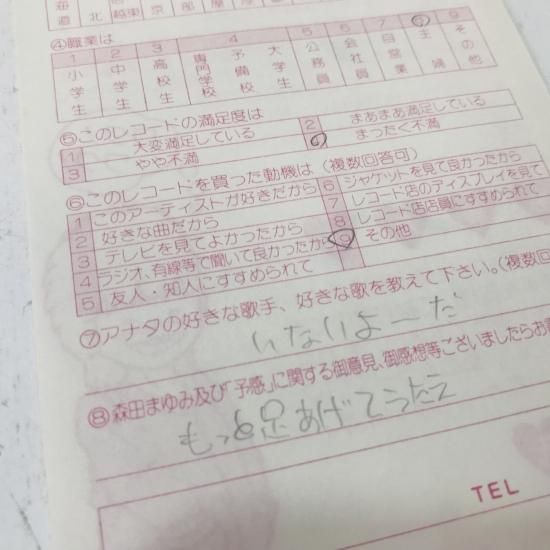 海道 北 越 東 京 部 屋 部 屋
④職業は
1 2 3 4 5 6 7 9
小学生 中学生 高校生 専門学校 予備校 大学生 公務員 会社員 自営業 主婦 その他
⑤このレコードの満足度は
1 大変満足している 2 まあまあ満足している
3 やや不満 まったく不満
⑥このレコードを買った動機は(複数回答可)
1 このアーティストが好きだから 6 ジャケットを見て良かったから
2 好きな曲だから 7 レコード店のディスプレイを見て
3 テレビを見てよかったから 8 レコード店店員にすすめられて
4 ラジオ、有線等で聞いて良かったから 9 その他
5 友人・知人にすすめられて
⑦アナタの好きな歌手、好きな歌を教えて下さい。(複数回
いないよーだ
⑧森田まゆみ及び「予感」に関する御意見、御感想等ございましたらお
もっと足あげてうたえ
TEL